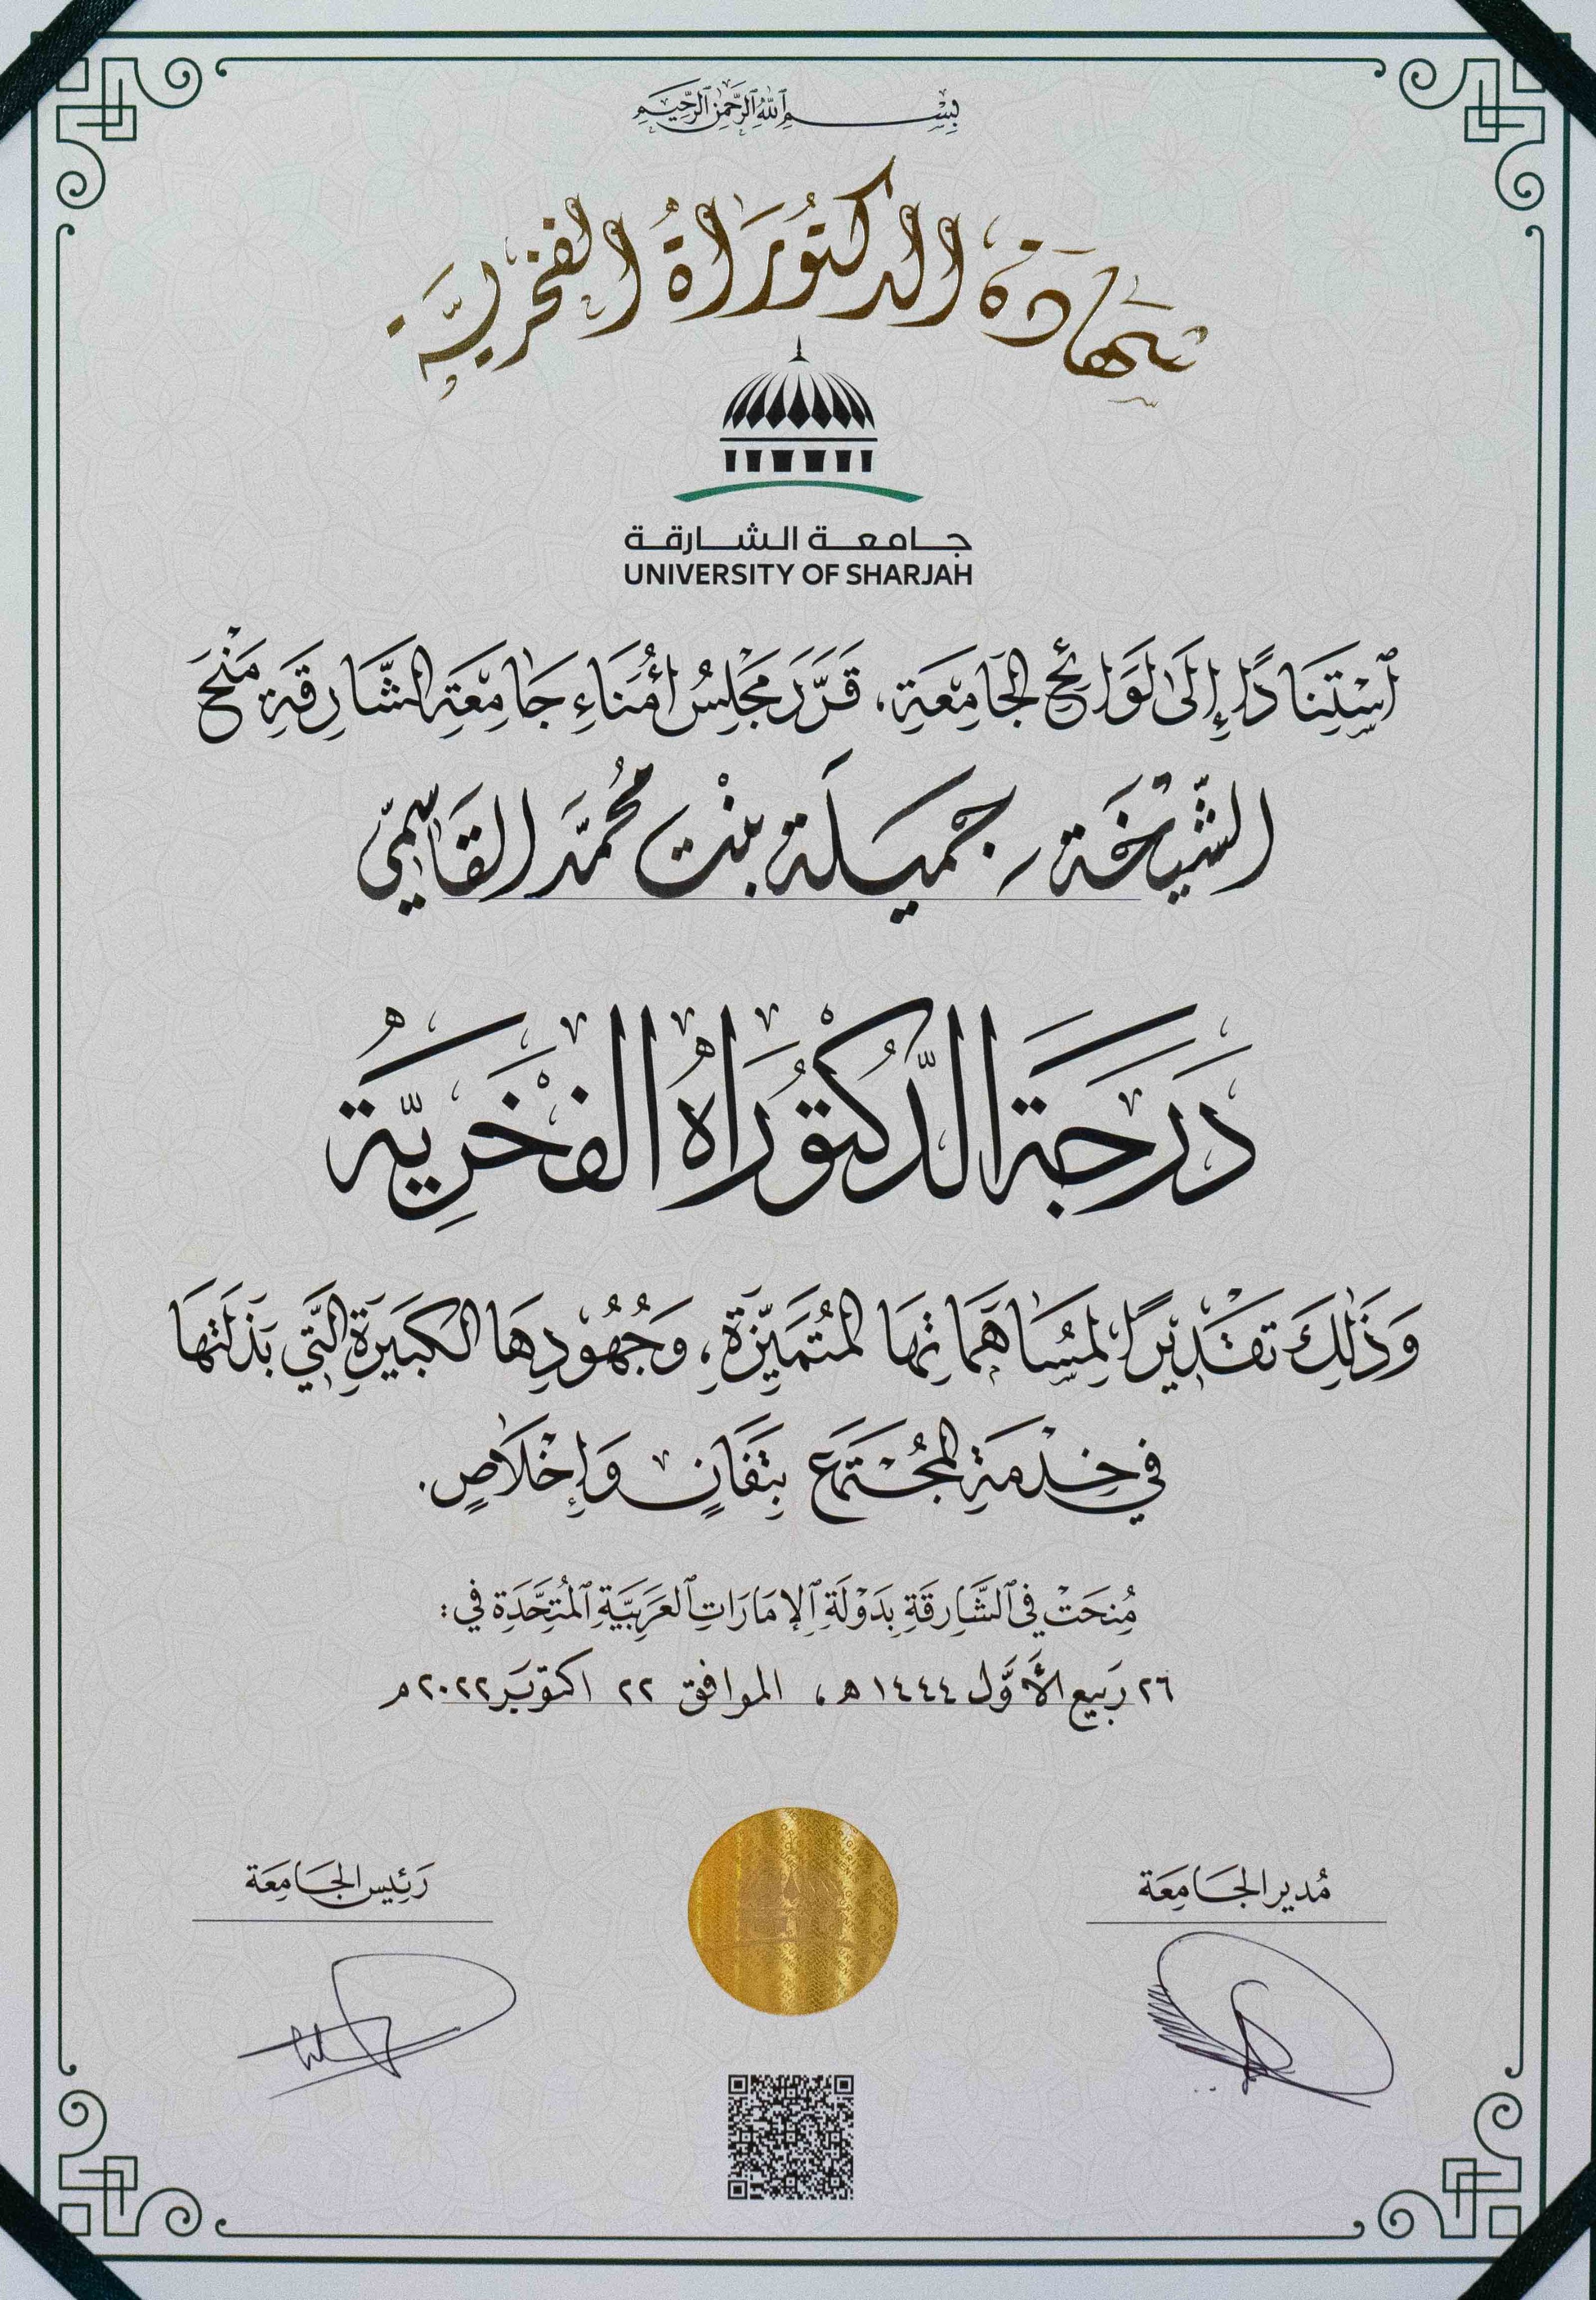 بِسْمِ ٱللَّهِ ٱلرَّحْمَٰنِ ٱلرَّحِيمِ
شهادة الدكتُوَراةُ الفخريَّة
جامعة الشارقة
UNIVERSITY OF SHARJAH
ٱسْتِنَادًا إِلَى لَوَائِحِ الجَامِعَةِ، قَرَّرَ مَجْلِسُ أُمَنَاءِ جَامِعَةِ الشَّارِقَةِ مَنْحَ
الشَّيْخَة / جَميلَة بنْت مُحمَّد القَاسِّمي
دَرَجَةَ الدُّكْتُوَراهُ الفَخْرِيَّةُ
وَذَٰلِكَ تَقْدِيرًا لِمُسَاهَمَاتِهَا المُتَمَيِّزَةِ، وَجُهُودِهَا الكَبِيَرةِ الَّتي بَذَلَتْهَا
في خِدْمَةِ المُجْتَمَعَ بِتَفَانٍ وَإِخْلَاصٍ.
مُنِحَتْ في ٱلشَّارِقَةِ بِدَوْلَةِ ٱلإمَارَاتِ ٱلعَرَبِيَّةِ ٱلمُتَّحَدَةِ في:
٢٦ رَبيع الأَوَّل ١٤٤٤ هـ، الموافق ٢٢ اكتوبَر ٢٠٢٢ م
مُدير الجَامِعَة
رَئِيس الجَامِعَة